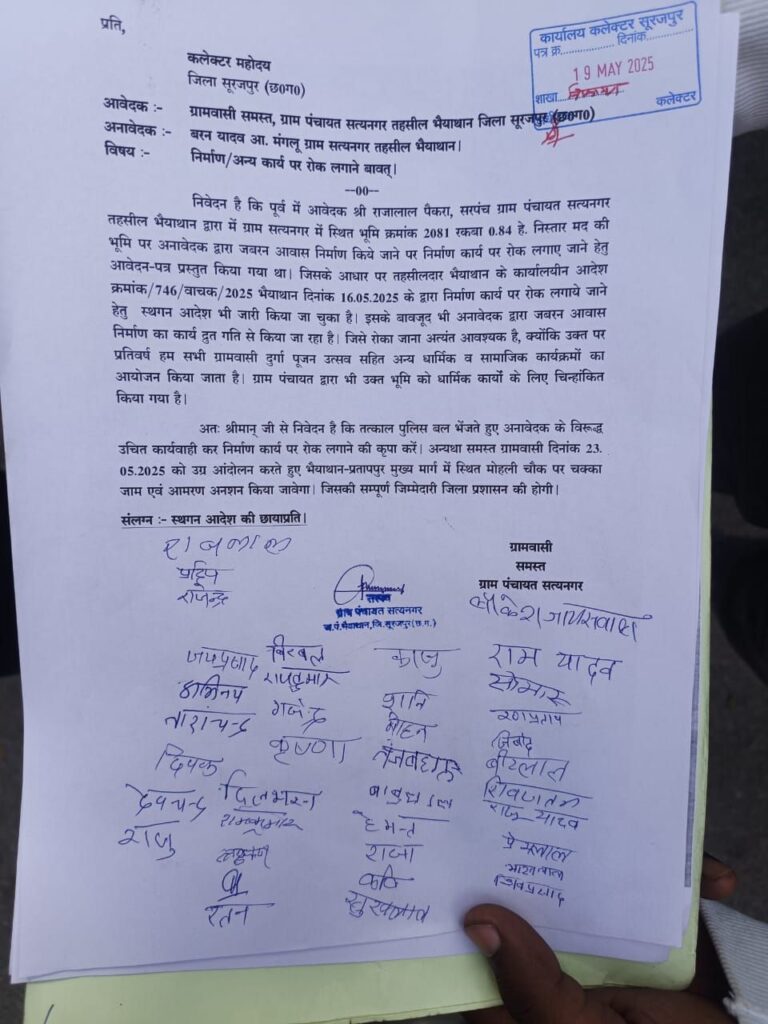 प्रति,
कार्यालय कलेक्टर सूरजपुर
पत्र क्र.................. दिनांक..................
19 MAY 2025
शाखा
कलेक्टर
कलेक्टर महोदय
जिला सूरजपुर (छ०ग०)
आवेदक :- ग्रामवासी समस्त, ग्राम पंचायत सत्यनगर तहसील भैयाथान जिला सूरजपुर (छ०ग०)
अनावेदक :- बरन यादव आ. मंगलू ग्राम सत्यनगर तहसील भैयाथान।
विषय :- निर्माण/अन्य कार्य पर रोक लगाने बावत्।
--00--
निवेदन है कि पूर्व में आवेदक श्री राजालाल पैकरा, सरपंच ग्राम पंचायत सत्यनगर
तहसील भैयाथान द्वारा में ग्राम सत्यनगर में स्थित भूमि क्रमांक 2081 रकवा 0.84 हे. निस्तार मद की
भूमि पर अनावेदक द्वारा जबरन आवास निर्माण किये जाने पर निर्माण कार्य पर रोक लगाए जाने हेतु
आवेदन-पत्र प्रस्तुत किया गया था। जिसके आधार पर तहसीलदार भैयाथान के कार्यालयीन आदेश
क्रमांक/746/वाचक/2025 भैयाथान दिनांक 16.05.2025 के द्वारा निर्माण कार्य पर रोक लगाये जाने
हेतु स्थगन आदेश भी जारी किया जा चुका है। इसके बावजूद भी अनावेदक द्वारा जबरन आवास
निर्माण का कार्य द्रुत गति से किया जा रहा है। जिसे रोका जाना अत्यंत आवश्यक है, क्योंकि उक्त पर
प्रतिवर्ष हम सभी ग्रामवासी दुर्गा पूजन उत्सव सहित अन्य धार्मिक व सामाजिक कार्यक्रमों का
आयोजन किया जाता है। ग्राम पंचायत द्वारा भी उक्त भूमि को धार्मिक कार्यो के लिए चिन्हांकित
किया गया है।
अतः श्रीमान् जी से निवेदन है कि तत्काल पुलिस बल भेंजते हुए अनावेदक के विरूद्ध
उचित कार्यवाही कर निर्माण कार्य पर रोक लगाने की कृपा करें। अन्यथा समस्त ग्रामवासी दिनांक 23.
05.2025 को उग्र आंदोलन करते हुए भैयाथान-प्रतापपुर मुख्य मार्ग में स्थित मोहली चौक पर चक्का
जाम एवं आमरण अनशन किया जावेगा। जिसकी सम्पूर्ण जिम्मेदारी जिला प्रशासन की होगी।
संलग्न :- स्थगन आदेश की छायाप्रति।
ग्रामवासी
समस्त
ग्राम पंचायत सत्यनगर
राजलाल
प्रदिप
राजेन्द्र
सरपंच
ग्राम पंचायत सत्यनगर
ज.पं.भैयाथान,जि.सूरजपुर(छ.ग.)
जयप्रसाद बिरबल काजु राम यादव
अभिनय रामकुमार शान्ति सोमारू
ताराचन्द्र गजेन्द्र मोहन रणप्रताप
कृष्णा तेजबहादुर
दिपक
देवचन्द्र दिलभरन बाबुलाल
राजु रामकुमार हेमन्त राजु यादव
राजा प्रेमलाल
रतन शिवप्रसाद